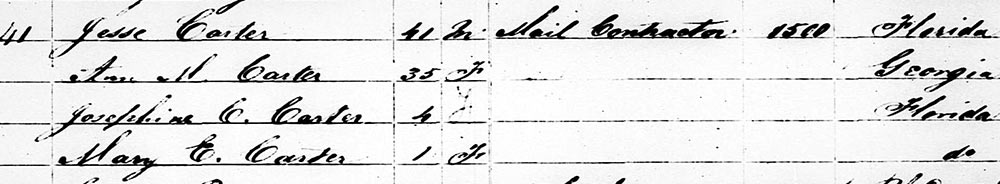 41 Jesse Carter 41 M Mail Contractor 1500 Florida
Ann M. Carter 35 F Georgia
Josephine C. Carter 4 Florida
Mary E. Carter 1 F do